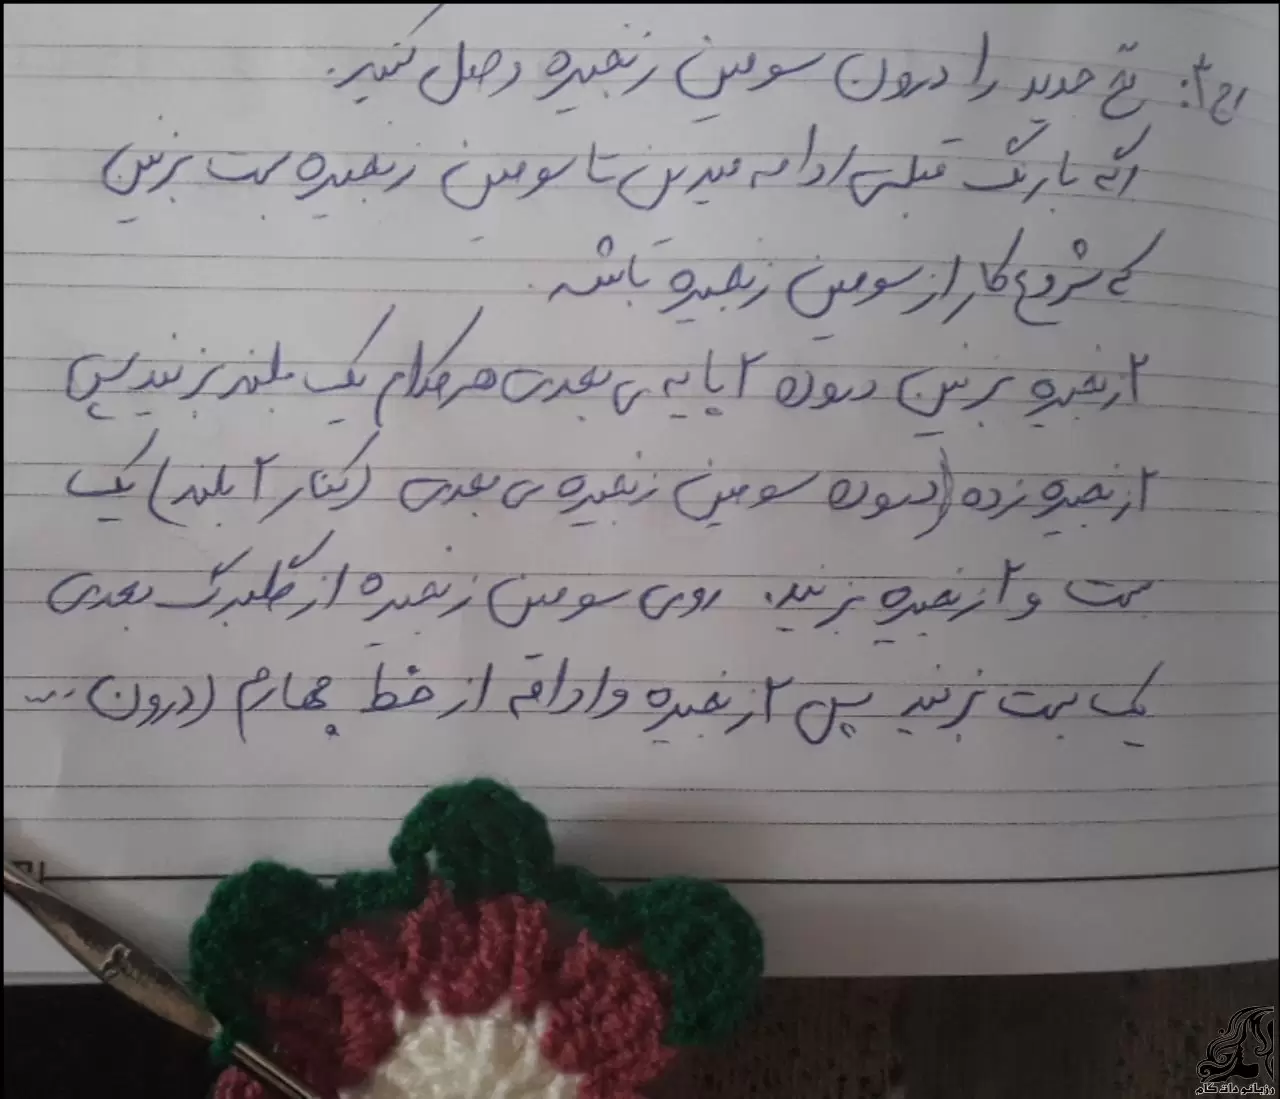 رج ۳: نخ جدید را درون سومین زنجیره وصل کنید.
اگه با رنگ قبلی ادامه میدین تا سومین زنجیره بست بزنین
که شروع کار از سومین زنجیره باشه.
۲ زنجیره بزنین درون ۲ پایه ی بعدی هرکدام یک بلند بزنید پس
۲ زنجیره زده (درون سومین زنجیره ی بعدی (کنار ۲ بلند) یک
بست و ۲ زنجیره بزنید. روی سومین زنجیره از گلبرگ بعدی
یک بست بزنید پس ۲ زنجیره و ادامه از خط چهارم (درون) ...
رزبانو دات کام